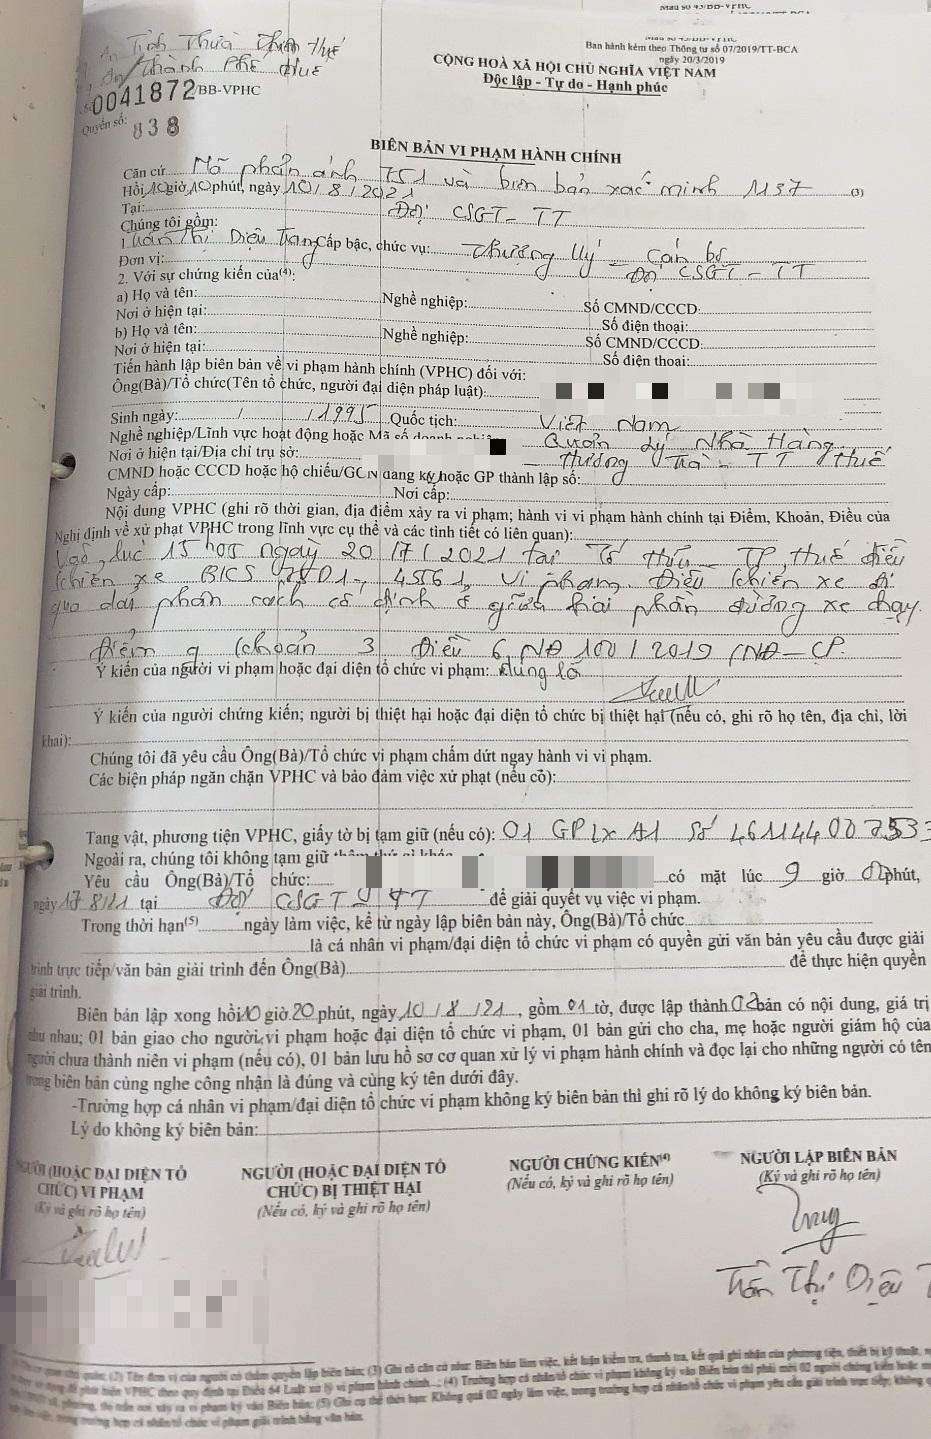 Mẫu số 43/BB-VPHC
Ban hành kèm theo Thông tư số 07/2019/TT-BCA
ngày 20/3/2019
CA Tỉnh Thừa Thiên Huế
CA Thành Phố Huế
CỘNG HOÀ XÃ HỘI CHỦ NGHĨA VIỆT NAM
Độc lập - Tự do - Hạnh phúc
0041872/BB-VPHC
Quyển số: 838
BIÊN BẢN VI PHẠM HÀNH CHÍNH
Căn cứ Mã phản ánh 751 và biên bản xác minh 1137 (3)
Hồi 10 giờ 10 phút, ngày 10/8/2021
Tại: Đội CSGT-TT
Chúng tôi gồm:
1. Trần Thị Diệu Trang Cấp bậc, chức vụ: Thượng úy - Cán bộ
Đơn vị: Đội CSGT-TT
2. Với sự chứng kiến của(4):
a) Họ và tên: Nghề nghiệp: Số CMND/CCCD:
Nơi ở hiện tại: Số điện thoại:
b) Họ và tên: Nghề nghiệp: Số CMND/CCCD:
Nơi ở hiện tại: Số điện thoại:
Tiến hành lập biên bản về vi phạm hành chính (VPHC) đối với:
Ông(Bà)/Tổ chức(Tên tổ chức, người đại diện pháp luật):
Sinh ngày: / /1995 Quốc tịch: Việt Nam
Nghề nghiệp/Lĩnh vực hoạt động hoặc Mã số doanh Quản lý Nhà Hàng
Nơi ở hiện tại/Địa chỉ trụ sở: - TT Huế
CMND hoặc CCCD hoặc hộ chiếu/GCN đăng ký hoặc GP thành lập số:
Ngày cấp: Nơi cấp:
Nội dung VPHC (ghi rõ thời gian, địa điểm xảy ra vi phạm; hành vi vi phạm hành chính tại Điểm, Khoản, Điều của
Nghị định về xử phạt VPHC trong lĩnh vực cụ thể và các tình tiết có liên quan):
Vào lúc 15h05 ngày 20/7/2021 tại Tố Hữu - TP Huế điều
khiển xe BKS 75D1-45561 vi phạm Điều khiển xe đi
qua dải phân cách cố định ở giữa hai phần đường xe chạy.
Điểm q khoản 3 Điều 6 NĐ 100/2019/NĐ-CP.
Ý kiến của người vi phạm hoặc đại diện tổ chức vi phạm: đúng lỗi
Ý kiến của người chứng kiến; người bị thiệt hại hoặc đại diện tổ chức bị thiệt hại (nếu có, ghi rõ họ tên, địa chỉ, lời
khai):
Chúng tôi đã yêu cầu Ông(Bà)/Tổ chức vi phạm chấm dứt ngay hành vi vi phạm.
Các biện pháp ngăn chặn VPHC và bảo đảm việc xử phạt (nếu có):
Tang vật, phương tiện VPHC, giấy tờ bị tạm giữ (nếu có): 01 GPLX A1 số
Ngoài ra, chúng tôi không tạm giữ thêm thứ gì khác
Yêu cầu Ông(Bà)/Tổ chức: có mặt lúc 9 giờ phút,
ngày 17/8/21 tại Đội CSGT-TT để giải quyết vụ việc vi phạm.
Trong thời hạn(5) ngày làm việc, kể từ ngày lập biên bản này, Ông(Bà)/Tổ chức
là cá nhân vi phạm/đại diện tổ chức vi phạm có quyền gửi văn bản yêu cầu được giải
trình trực tiếp/văn bản giải trình đến Ông(Bà) để thực hiện quyền
giải trình.
Biên bản lập xong hồi 10 giờ 20 phút, ngày 10/8/21, gồm 01 tờ, được lập thành 02 bản có nội dung, giá trị
như nhau; 01 bản giao cho người vi phạm hoặc đại diện tổ chức vi phạm, 01 bản gửi cho cha, mẹ hoặc người giám hộ của
người chưa thành niên vi phạm (nếu có), 01 bản lưu hồ sơ cơ quan xử lý vi phạm hành chính và đọc lại cho những người có tên
trong biên bản cùng nghe công nhận là đúng và cùng ký tên dưới đây.
-Trường hợp cá nhân vi phạm/đại diện tổ chức vi phạm không ký biên bản thì ghi rõ lý do không ký biên bản.
Lý do không ký biên bản:
NGƯỜI (HOẶC ĐẠI DIỆN TỔ CHỨC) VI PHẠM
(Ký và ghi rõ họ tên)
NGƯỜI (HOẶC ĐẠI DIỆN TỔ CHỨC) BỊ THIỆT HẠI
(Nếu có, ký và ghi rõ họ tên)
NGƯỜI CHỨNG KIẾN(4)
(Nếu có, ký và ghi rõ họ tên)
NGƯỜI LẬP BIÊN BẢN
(Ký và ghi rõ họ tên)
Trần Thị Diệu T